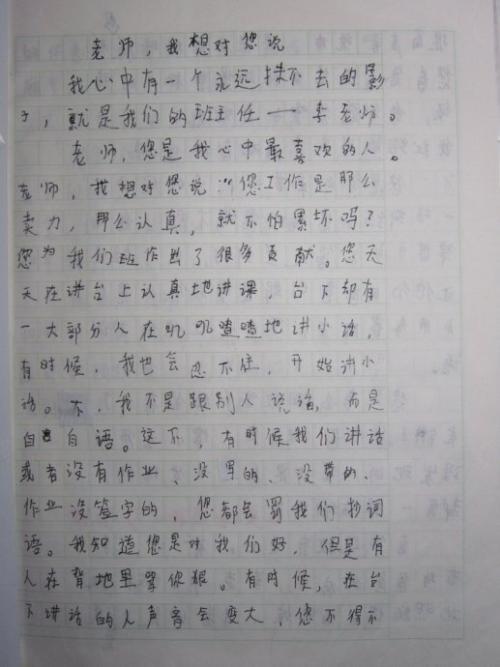 老师，我想对您说
我心中有一个永远抹不去的影
子，就是我们的班主任——李老师。
老师，您是我心中最喜欢的人。
老师，我想对您说："您工作是那么
卖力，那么认真，就不怕累坏吗？
您为我们班作出了很多贡献。您天
天在讲台上认真地讲课，台下却有
一大部分人在叽叽喳喳地讲小话，
有时候，我也会忍不住，开始讲小
话。不，我不是跟别人说话，而是
自言自语。这不，有时候我们讲话
或者没有作业、没写的、没带的、
作业没签字的，您都会罚我们抄词
语。我知道您是对我们好，但是有
人在背地里骂你狠。有时候，在台
下讲话的人声音会变大，您不得不